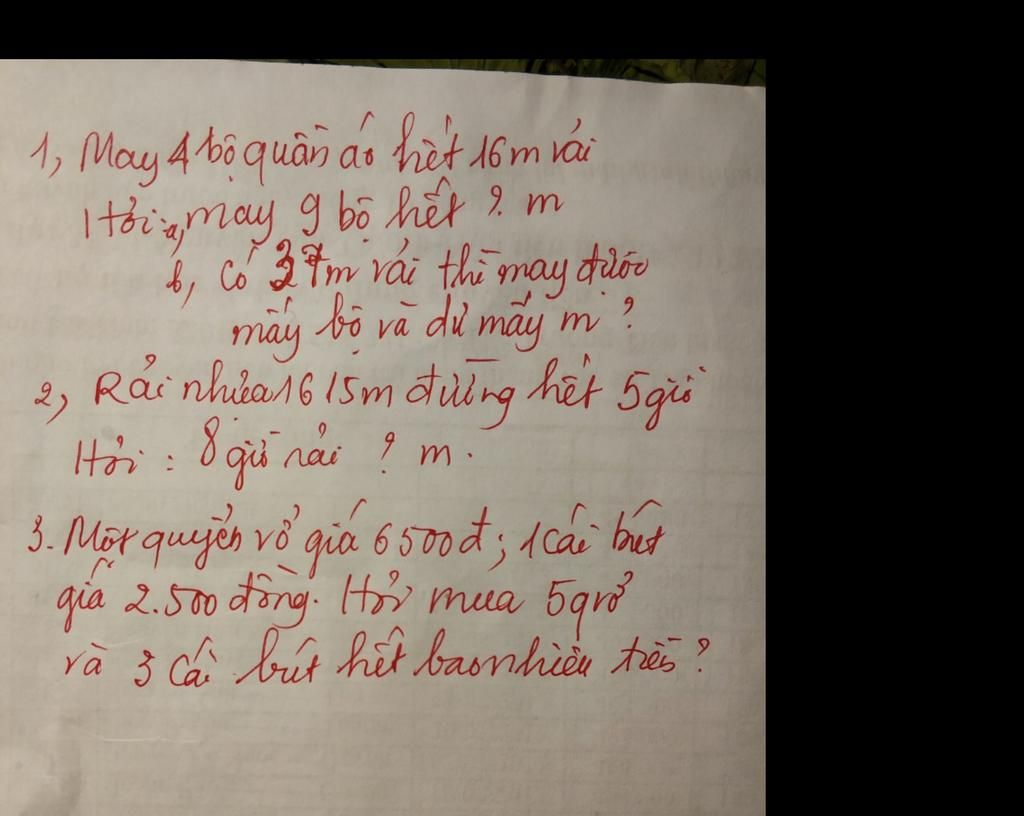 1, May 4 bộ quần áo hết 16m vải
Hỏi: a, may 9 bộ hết ? m
b, Có 37m vải thì may được
mấy bộ và dư mấy m ?
2, Rải nhựa 1615m đường hết 5 giờ
Hỏi : 8 giờ rải ? m.
3. Một quyển vở giá 6500đ; 1 cái bút
giá 2.500 đồng. Hỏi mua 5qvở
và 3 cái bút hết bao nhiêu tiền ?